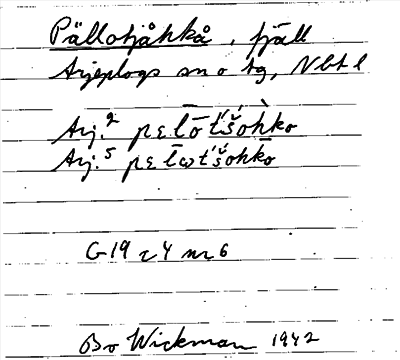 Pällotjåhkå, fjäll
Arjeplogs sn o tg, Nbt l
Arj.² pɛl̄ōt́šòhko
Arj.⁵ pɛl̄ωt́šohk̄o
G 19 z 4 nr 6
Bo Wickman 1942